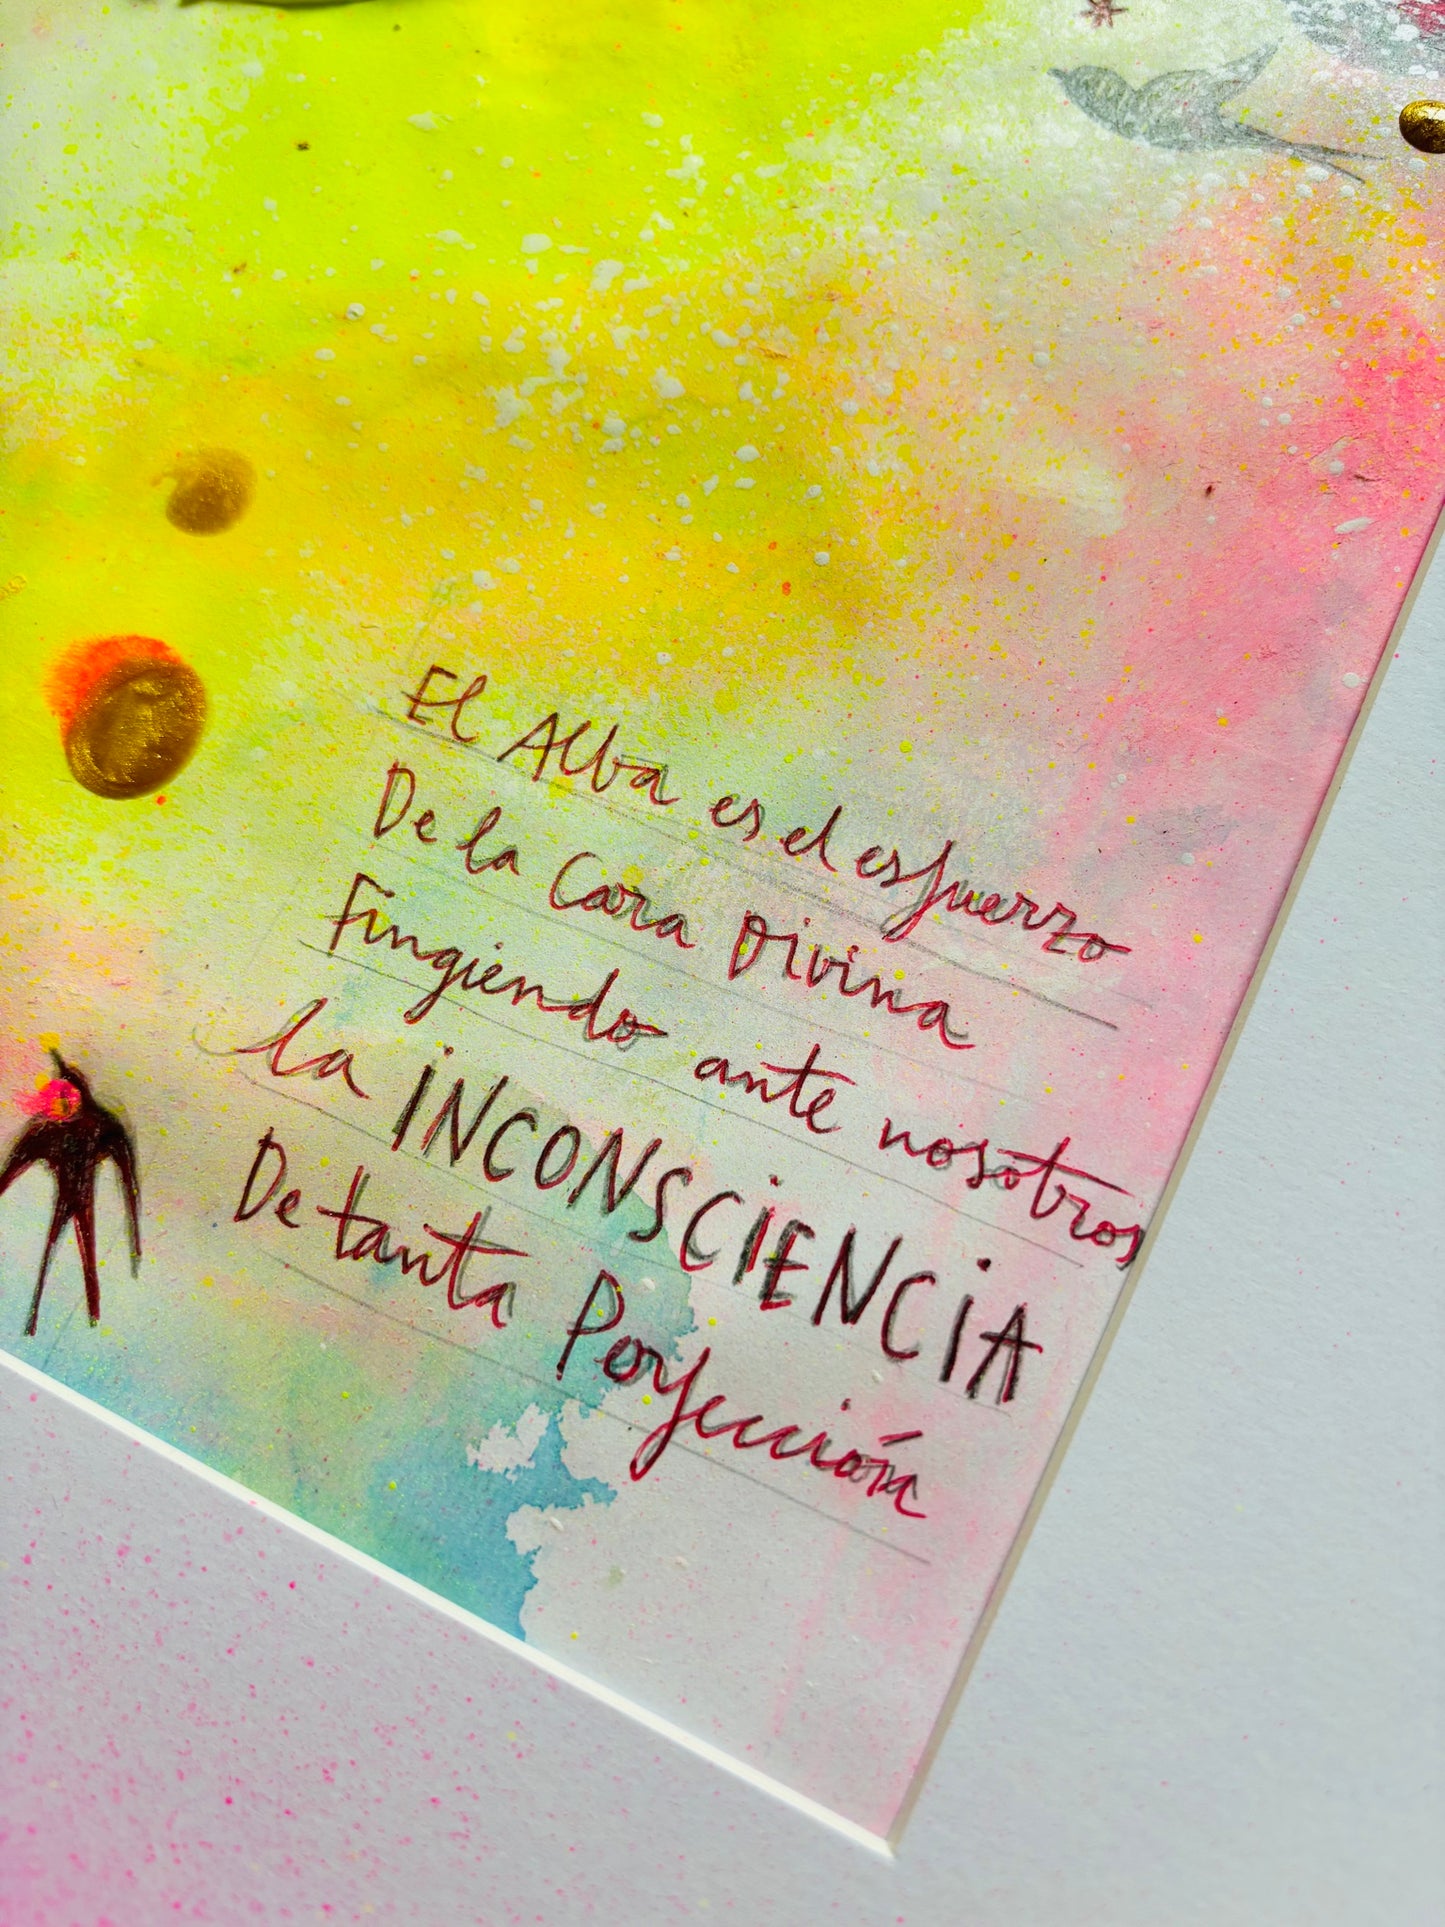 El Alba es el esfuerzo
De la Cara Divina
Fingiendo ante nosotros
la INCONSCIENCIA
De tanta Perfección